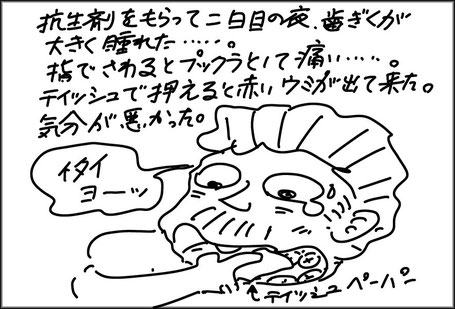 抗生剤をもらって二日目の夜、歯ぎくが
大きく腫れた……。
指でさわるとプックラとして痛い……。
ティッシュで押えると赤いウミが出て来た。
気分が悪かった。
イタイ
ヨーッ
↑ティッシュペーパー